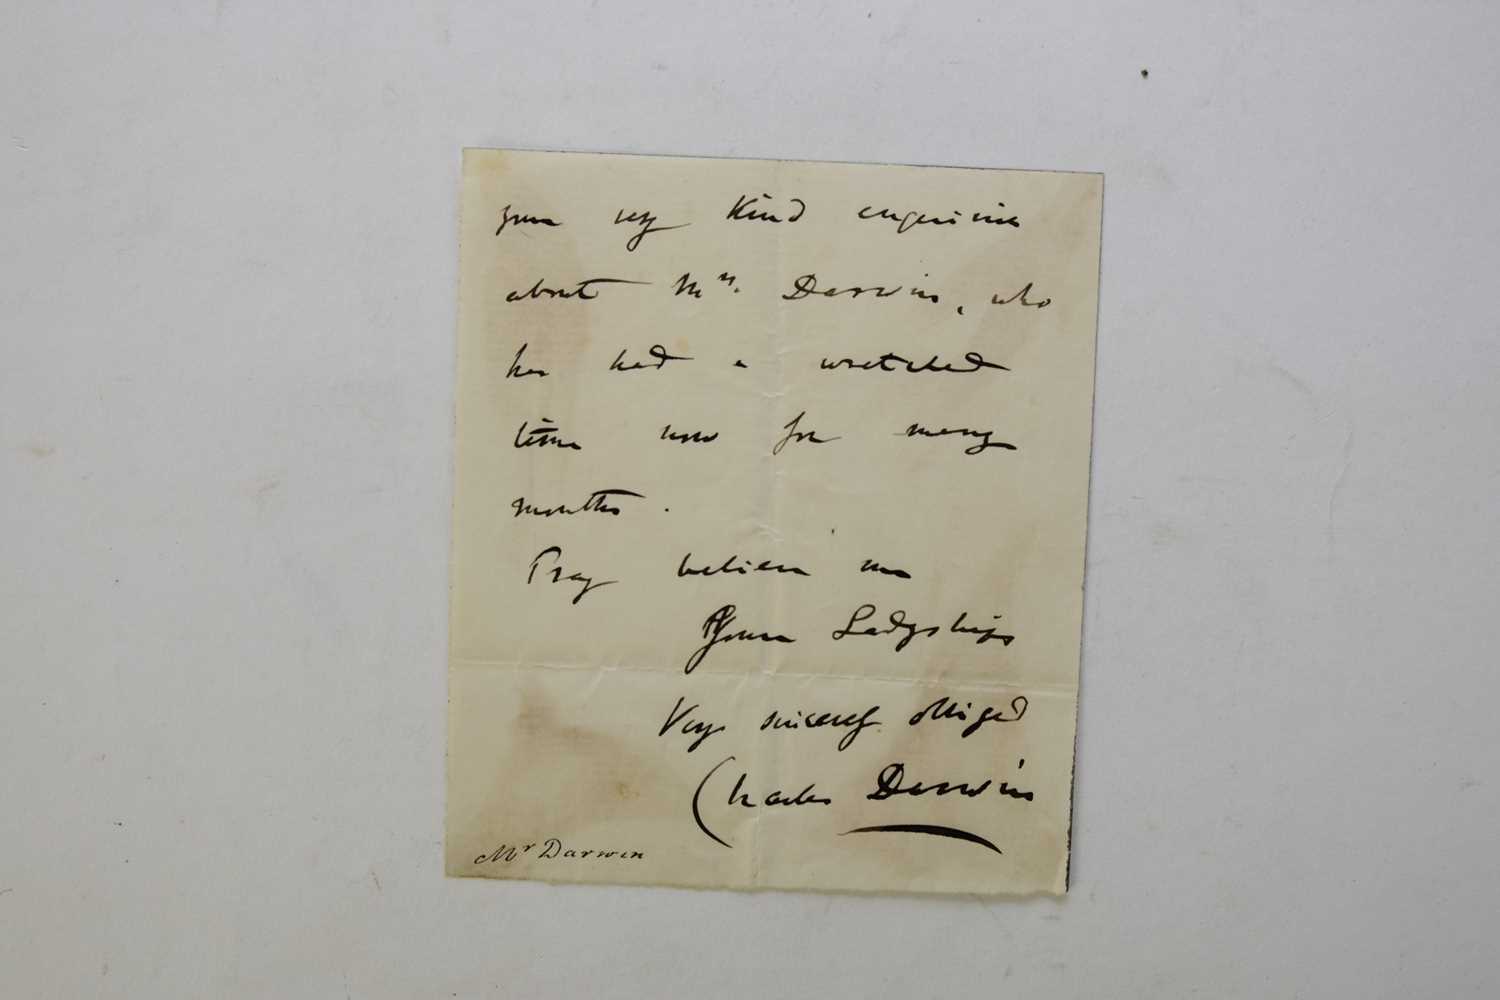 your very kind enquiries
about Mrs. Darwin, who
has had a wretched
time now for many
months.
Pray believe me
Your Ladyships
Very sincerely obliged
Charles Darwin
Mr Darwin